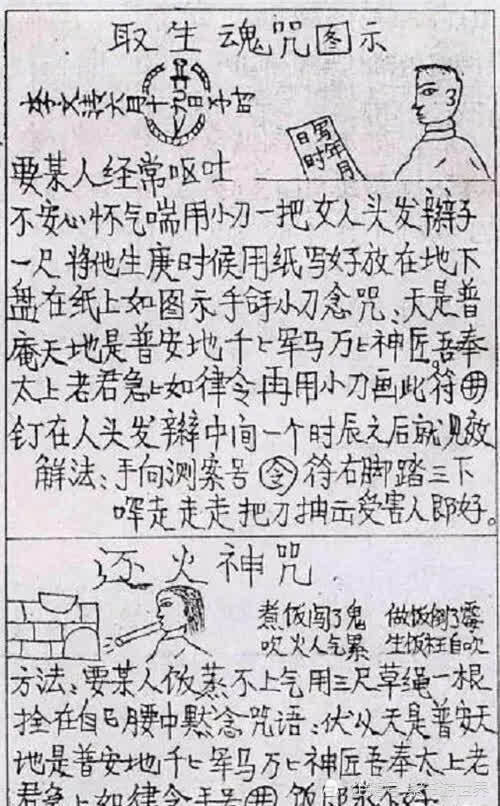 取生魂咒图示
李文洪六月十九日子时
日写年月
时
要某人经常呕吐
不安心怀气喘用小刀一把女人头发辫子
一尺将他生庚时候用纸写好放在地下
盘在纸上如图示手舒小刀念咒:天是普
庵天地是普安地千ヒ军马万ヒ神匠吾奉
太上老君急ヒ如律令再用小刀画此符井
钉在人头发辫中间一个时辰之后就见效
解法:手向测案号令符右脚踏三下
哞走走走把刀抽击受害人即好。
还火神咒
煮饭闯了鬼 做饭倒了霉
吹火人气累 生饭枉自吹
方法:要某人饭蒸不上气用三尺草绳一根
拴在自己腰中默念咒语:伏以天是普安天
地是普安地千ヒ军马万ヒ神匠吾奉太上老
君急ヒ如律令